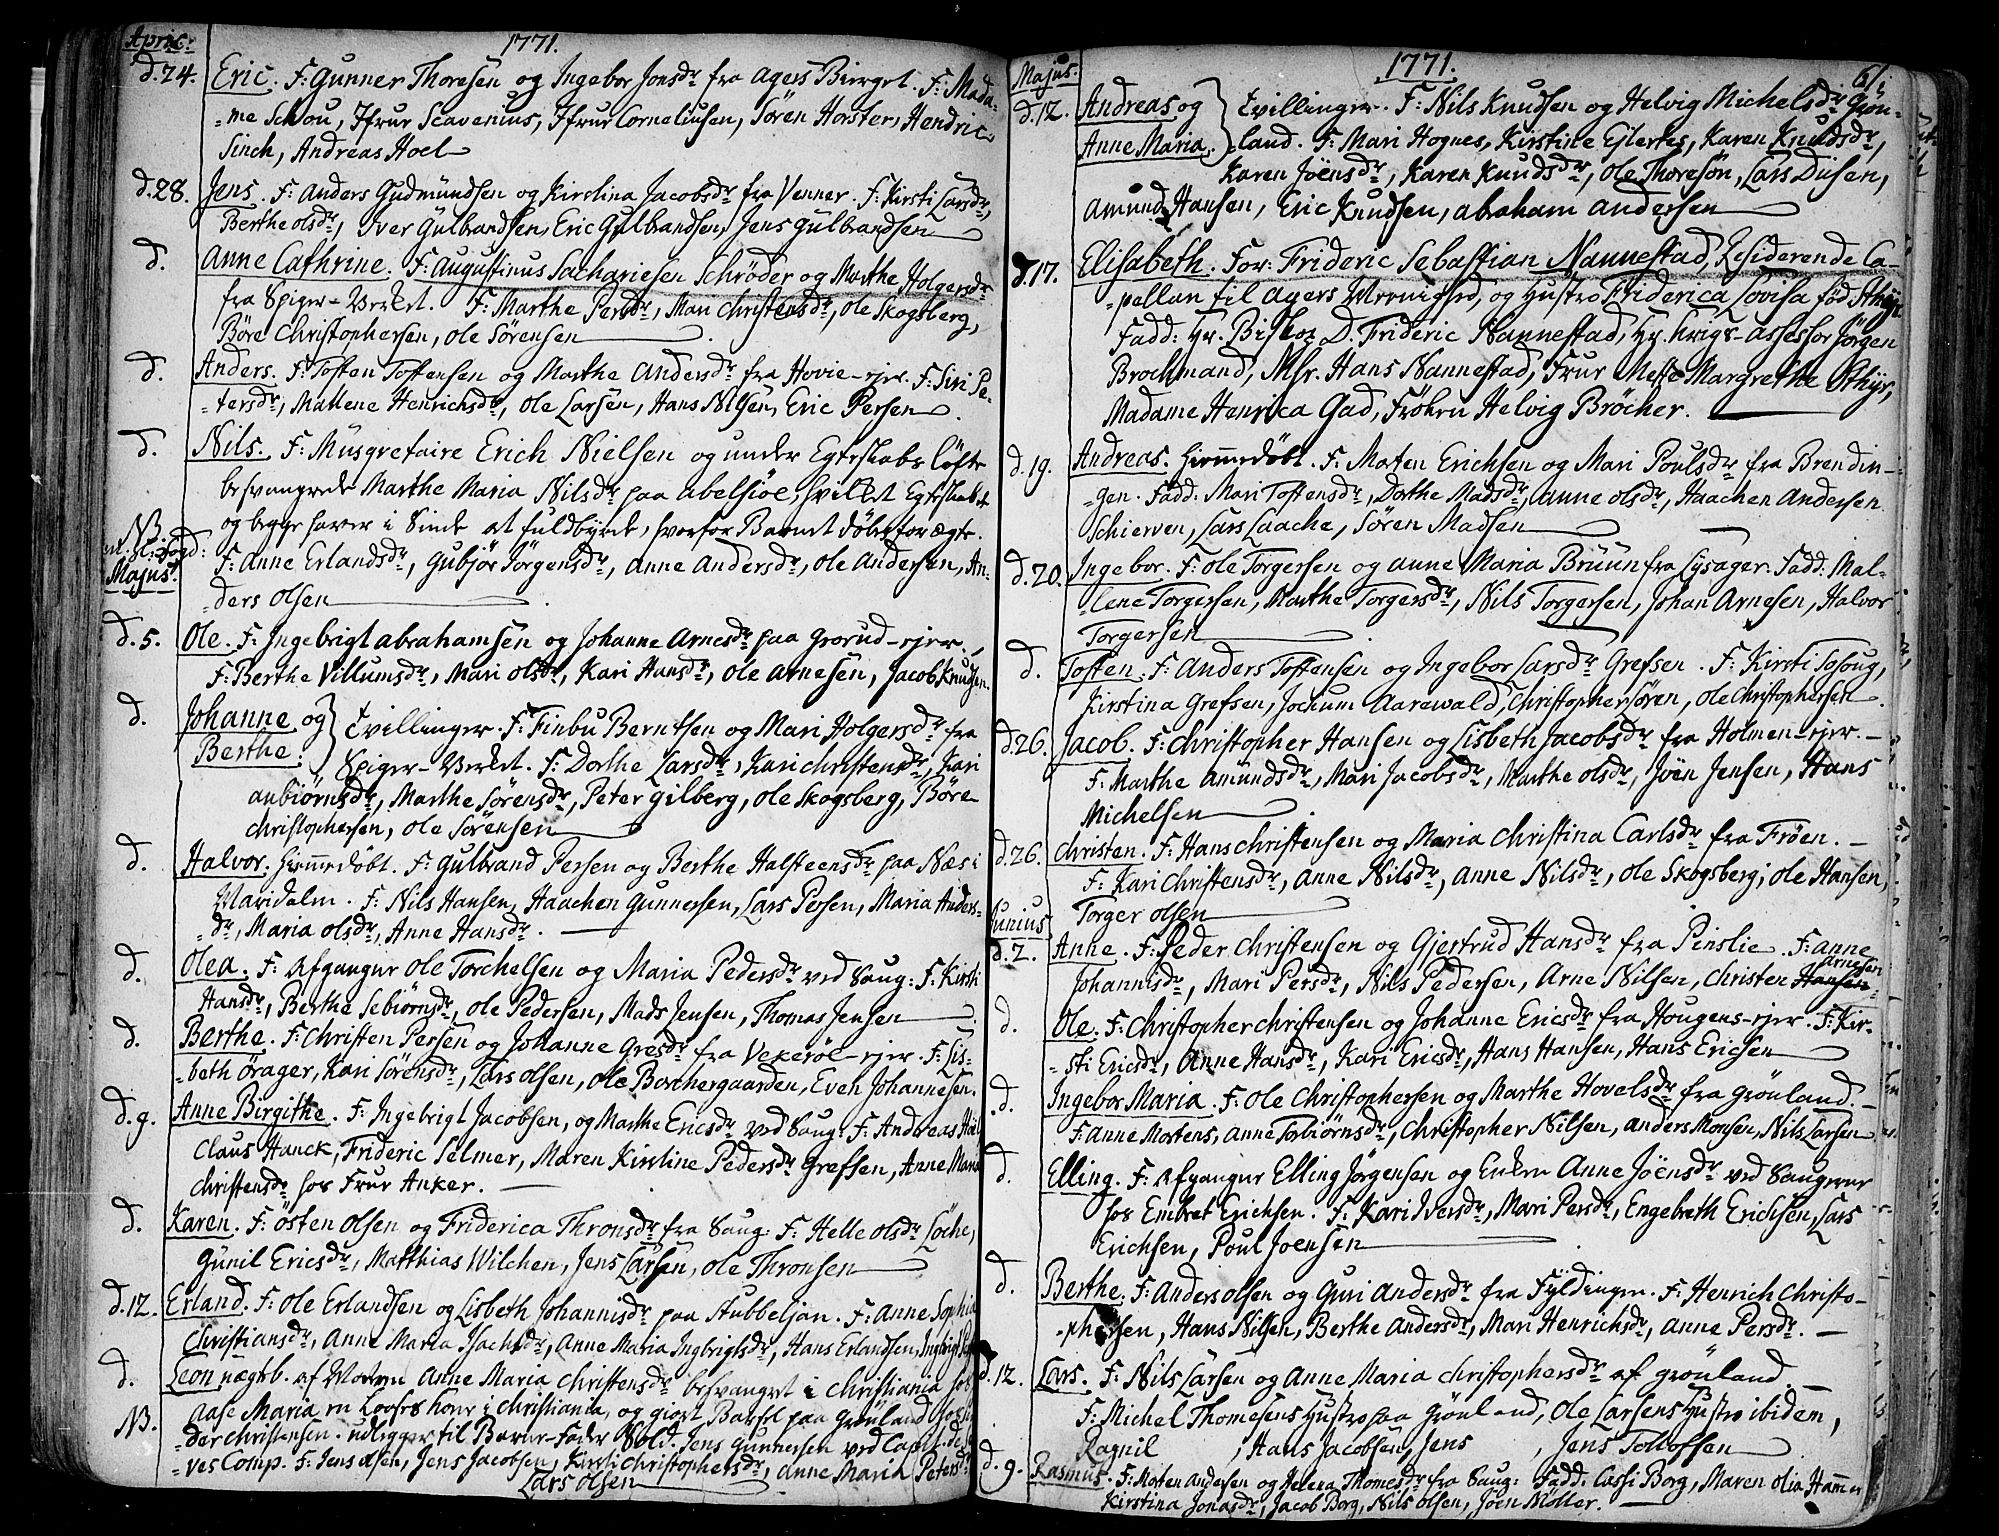 April: 1771.
d.24. Eric. F: Gunner Thoresen og Ingebor Jonsdr fra Agers Bierget. F: Mada-
-me Schou, Jfrur Scavenius, Jfrur Corneliusen, Sören Horster, Hendric
Sinch, Andreas Hoel
d.28. Jens. F: Anders Gudmundsen og Kirstina Jacobsdr fra Venner. F: Kirsti Larsdr,
Berthe olsdr, Iver Gulbrandsen, Eric Gulbrandsen, Jens Gulbrandsen
d. Anne Cathrine. F: Augustinus Sachariesen Schröder og Marthe Holgersdr
fra Spiger-Verket. F: Marthe Persdr, Mari Christensdr, Ole Skogsberg,
Böre Christophersen, Ole Sörensen
d. Anders. F: Tosten Tostensen og Marthe Andersdr fra Hovie-ejer. F: Siri Pe-
-tersdr, Mallene Henrichsdr, Ole Larsen, Hans Nilsen, Eric Persen.
d. Nils. F: Musqretaire Erich Nielsen og under Egteskabs löfte
besvangrede Marthe Maria Nilsdr paa Abelsiöe, hvilket Egteskabet
og begge haver i Sinde at fuldbyrde, hvorfor Barnet döbes for ægte.
F: Anne Erlandsdr, Gubjör Jörgensdr, Anne Andersdr, Ole Andersen, An-
-ders Olsen
NB.
Majus.
d.5. Ole. F: Ingebrigt Abrahamsen og Johanne Arnesdr paa Grorud-ejer.
F: Berthe Villumsdr, Mari olsdr, Kari Hansdr, Ole Arnesen, Jacob Knudsen.
d. Johanne og Berthe: Tvillinger. F: Finbu Berntsen og Mari Holgersdr fra
Spiger-Verket. F: Dorthe Larsdr, Kari Christensdr, Kari
Anbiörnsdr, Marthe Sörensdr, Peter Gilberg, Ole Skogsberg, Böre
Christophersen, Ole Sörensen
d. Halvor. hiemmedöbt. F: Gulbrand Persen og Berthe Halsteensdr paa Næs i
Maridalen. F: Nils Hansen, Haachen Gunnersen, Lars Persen, Maria Anders-
-dr, Maria olsdr, Anne Hansdr.
d. Olea. F: Afgangne Ole Torchelsen og Maria Pedersdr ved Saug: F: Kirsti
Hansdr, Berthe Sebiörnsdr, Ole Pedersen, Mads Jensen, Thomas Jensen
d. Berthe. F: Christen Persen og Johanne Gresdr fra Vekeröe-ejer. F: Lis-
-beth Örager, Kari Sörensdr, Lars Olsen, Ole Borchergaarden, Even Johannesen.
d.9. Anne Birgithe. F: Ingebrigt Jacobsen, og Marthe Ericsdr ved Saug: F: Andreas Hoel
Claus Hanck, Frideric Selmer, Maren Kirstine Pedersdr Grefsen, Anne Maria
Christensdr hos Frue Anker.
d. Karen. F: Östen Olsen og Friderica Thronsdr fra Saug: F: Helle olsdr Löche,
Gunil Ericsdr, Matthias Wilchen, Jens Larsen, Ole Thronsen
d.12. Erland. F: Ole Erlandsen og Lisbeth Johannisdr paa Stubbeljan. F: Anne Sophia
Christiansdr, Anne Maria Isachsdr, Anne Maria Ingbrigtsdr, Hans Erlandsen,
d. Leon uægteb. af Moderen Anne Maria Christensdr besvangret i Christiania hos
Aase Maria en Loosers kone i Christiania, og giort Barsel paa Grönland hos
-der Christensen. udlegger til Barne-Fader Sold: Jens Gunnersen ved Capit. de
-ves Comp. F: Jens Olsen, Jens Jacobsen, Kirsti Christophersdr, Anne Maria Petersdr
Lars Olsen
NB.
Majus. 1771. 61.
d.12. Andreas og Anne Maria. Tvillinger. F: Nils Knudsen og Helvig Michelsdr Grön-
-land. F: Mari Hognes, Kirstine Ejlertes, Karen Knudsdr,
Karen Jöensdr, Karen Knudsdr, Ole Thoresön, Lars Dusen,
Amund Hansen, Eric Knudsen, Abraham Andersen
d.17. Elisabeth. For: Frideric Sebastian Nannestad, Residerende Ca-
-pellan til Agers Meenighed, og Hustro Friderica Lovisa föd Rhyr.
Fadd: Hr. Biskop D. Frideric Nannestad, Hr. Krigs-Assessor Jörgen
Brochmand, Msr. Hans Nannestad, Frue Mette Margrethe Rhyr,
Madame Henrica Gad, Fröken Helvig Bröcher.
d.19. Andreas. hiemmedöbt. F: Morten Erichsen og Mari Poulsdr fra Brendin-
-gen. Fadd: Mari Tostensdr, Dorthe Madsdr, Anne olsdr, Haachen Andersen
Schierven, Lars Laache, Sören Madsen
d.20. Ingebor. F: Ole Torgersen og Anne Maria Bruun fra Lysager. Fadd: Mal-
-lene Torgersen, Marthe Torgersdr, Nils Torgersen, Johan Arnesen, Halvor
Torgersen
d. Tosten. F: Anders Tostensen og Ingebor Larsdr Grefsen. F: Kirsti Tosoug,
Kirstina Grefsen, Jochum Aarewald, Christopher Sören, Ole Christophersen.
d.26. Jacob. F: Christopher Hansen og Lisbeth Jacobsdr fra Holmen-ejer.
F: Marthe Amundsdr, Mari Jacobsdr, Marthe olsdr, Jöen Jensen, Hans
Michelsen
d.26. Christen. F: Hans Christensen og Maria Christina Carlsdr fra Fröen.
F: Kari Christensdr, Anne Nilsdr, Anne Nilsdr, Ole Skogsberg, Ole Hansen,
Torger Olsen
Junius
d.2. Anne. F: Peder Christensen og Gjertrud Hansdr fra Pinslie. F: Anne
Johannisdr, Mari Persdr, Nils Pedersen, Arne Nilsen, Christen Hansen Arnesen
d. Ole. F: Christopher Christensen og Johanne Ericsdr fra Hougens-ejer. F: Kir-
-sti Ericsdr, Anne Hansdr, Kari Ericsdr, Hans Hansen, Hans Ericsen
d. Ingebor Maria. F: Ole Christophersen og Marthe Hovelsdr fra Grönland.
F: Anne Mortens, Anne Torbiörnsdr, Christopher Nilsen, Anders Monsen, Nils Larsen
d. Elling. F: Afgangne Elling Jörgensen og Enken Anne Jöensdr ved Saugene
hos Embret Erichsen. F: Kari Iversdr, Mari Persdr, Engebreth Erichsen, Lars
Erichsen, Poul Joensen
d. Berthe. F: Anders Olsen og Guri Andersdr fra Fyldingen. F: Henrich Christo-
-phersen, Hans Nilsen, Berthe Andersdr, Mari Henrichsdr, Anne Persdr.
d.12. Lars. F: Nils Larsen og Anne Maria Christophersdr af Grönland.
F: Michel Thomesens Hustro paa Grönland, Ole Larsens Hustro ibidem,
Ragnil , Hans Jacobsen, Jens , Jens Tollofsen
d.9. Rasmus. F: Morten Andersen og Helena Thomesdr fra Saug: Fadd. Cassi Borg, Maren Olia Hammer
Kirstina Jonasdr, Jacob Borg, Nils Olsen, Jöen Möller.